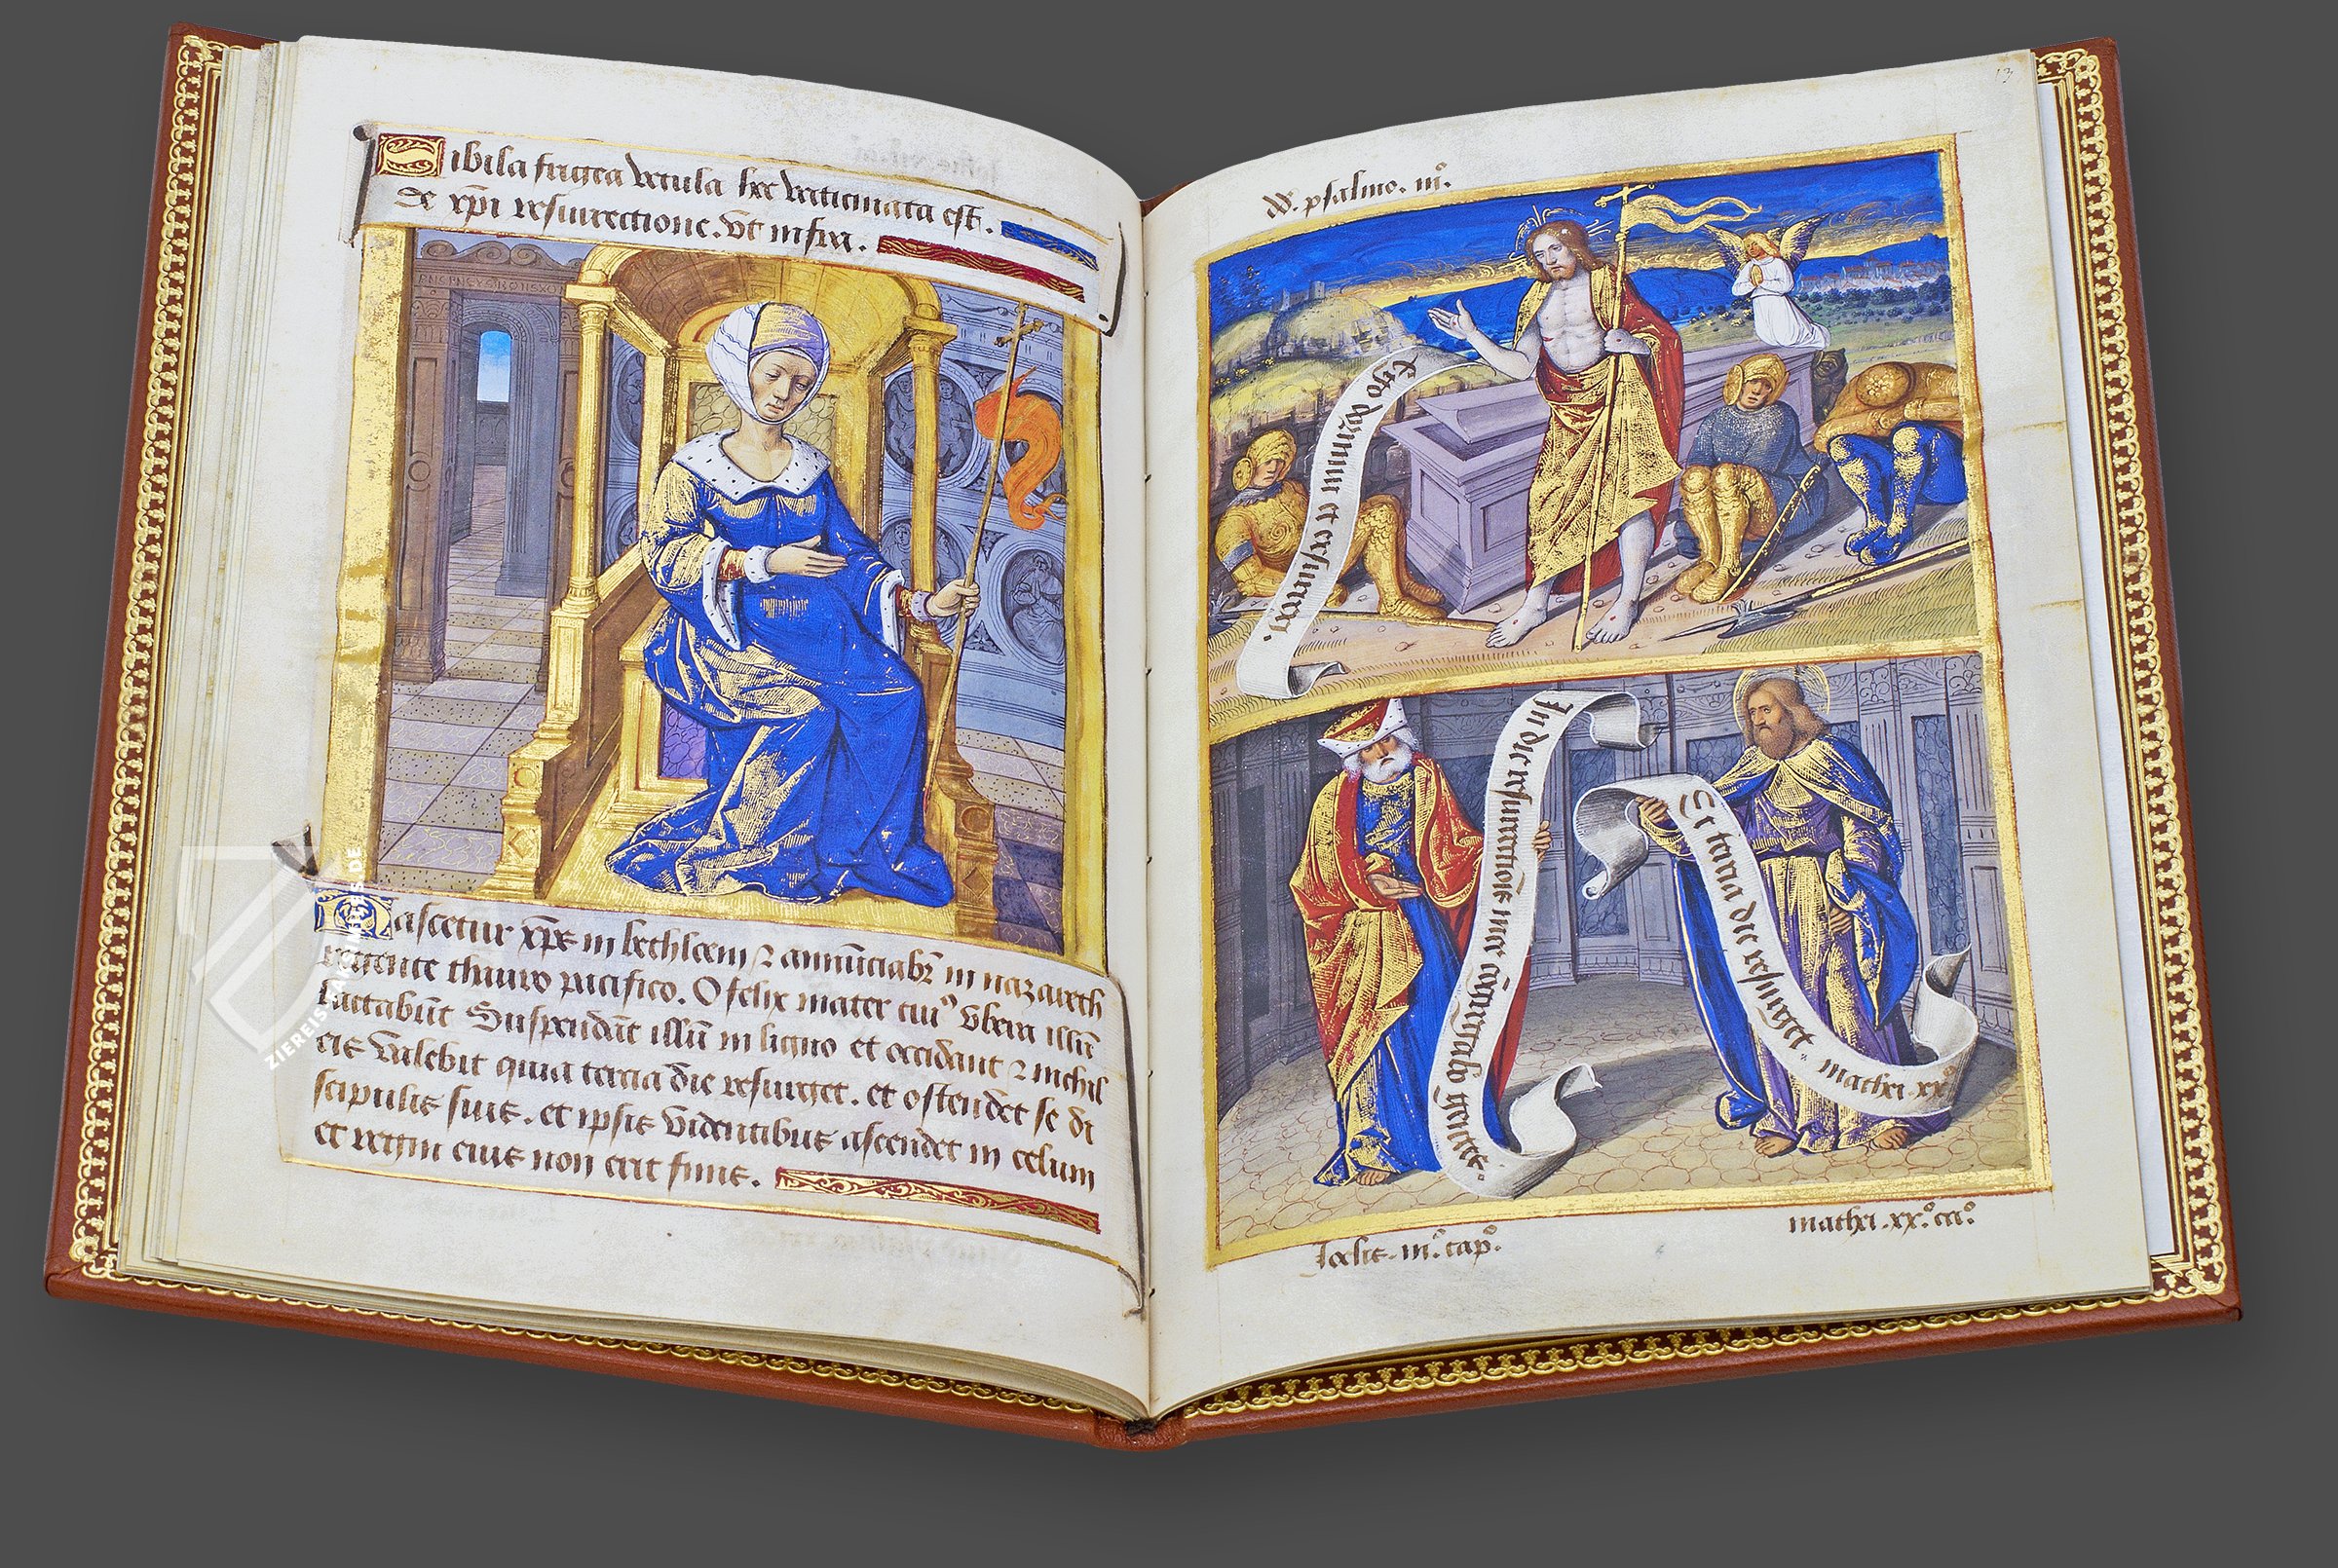 Sibila frigea vetula hec vaticinata est.
de xp̄i resurrectione. Vt infra.
PANCRNCVGRONSXO
Nascetur xp̄s in bethleem ⁊ annūciabr̄ in nazareth
regente thauro pacifico. O felix mater cui⁹ vbera illūm
lactabūt Suspendāt illū in ligno et occidant ⁊ nichil
eis valebit quia tercia die resurget. et ostendet se di
scipulis suis. et ipsis videntibus ascendet in celum
et regni eius non erit finis.
ZIEREIS
13
dd. psalmo. iiiº.
Ego dormiui et resurrexi.
In die resurrectiōis mee cōgregabo gentes.
Et tercia die resurget. mathei. xxº
Joelis. iiiº. capº.
mathei. xx.º caº.